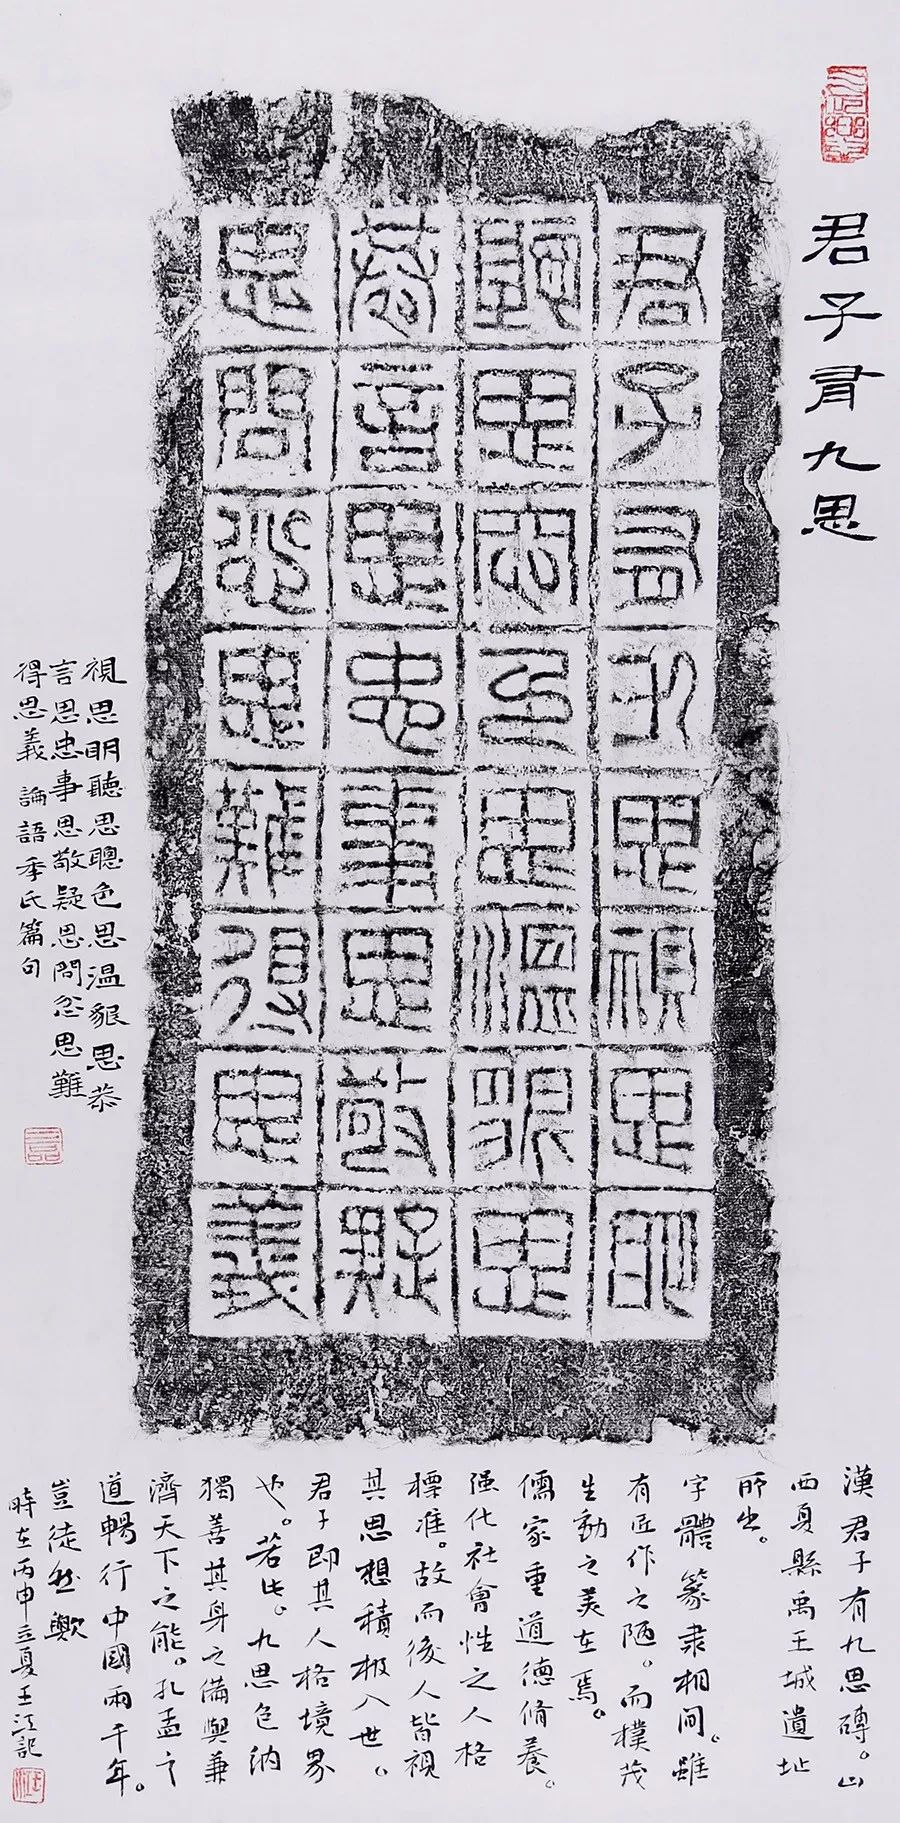 君子有九思
君子有九思視思明
聽思悤色思溫貌思
恭言思忠事思敬疑
思問忿思難得思義
視思明聽思聰色思温貌思恭
言思忠事思敬疑思問忿思難
得思義論語季氏篇句
漢君子有九思磚。山
西夏縣禹王城遺址
所出。
字體篆隶相间。雖
有匠作之陋。而樸茂
生動之美在焉。
儒家重道德脩養。
强化社會性之人格
標准。故而後人皆視
其思想積极入世。
君子即其人格境界
也。若此。九思包納
獨善其身之備與兼
濟天下之能。孔孟之
道暢行中國兩千年。
豈徒然歟
時在丙申立夏王江記